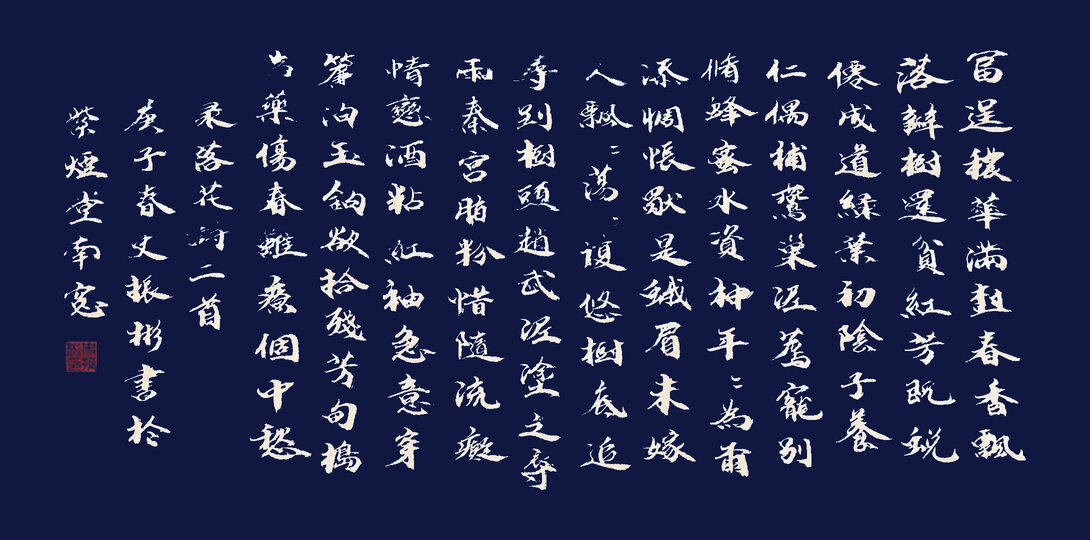 富逞穠華滿樹春香飄
落瓣樹還貧紅芳既蛻
僊成道綠葉初陰子養
仁偶補鶯巢泥薦寵別
脩蜂蜜水資神年〻為爾
添惆悵猒是蛾眉未嫁
人飄〻蕩〻復悠樹底追
尋到樹頭趙武泥塗之辱
雨秦宮脂粉惜隨流癡
情戀酒粘紅袖急意穿
簾泊玉鉤欲拾殘芳句搗
為藥傷春難療個中愁
录落花詩二首
庚子春史振彬書於
紫煙堂南窗